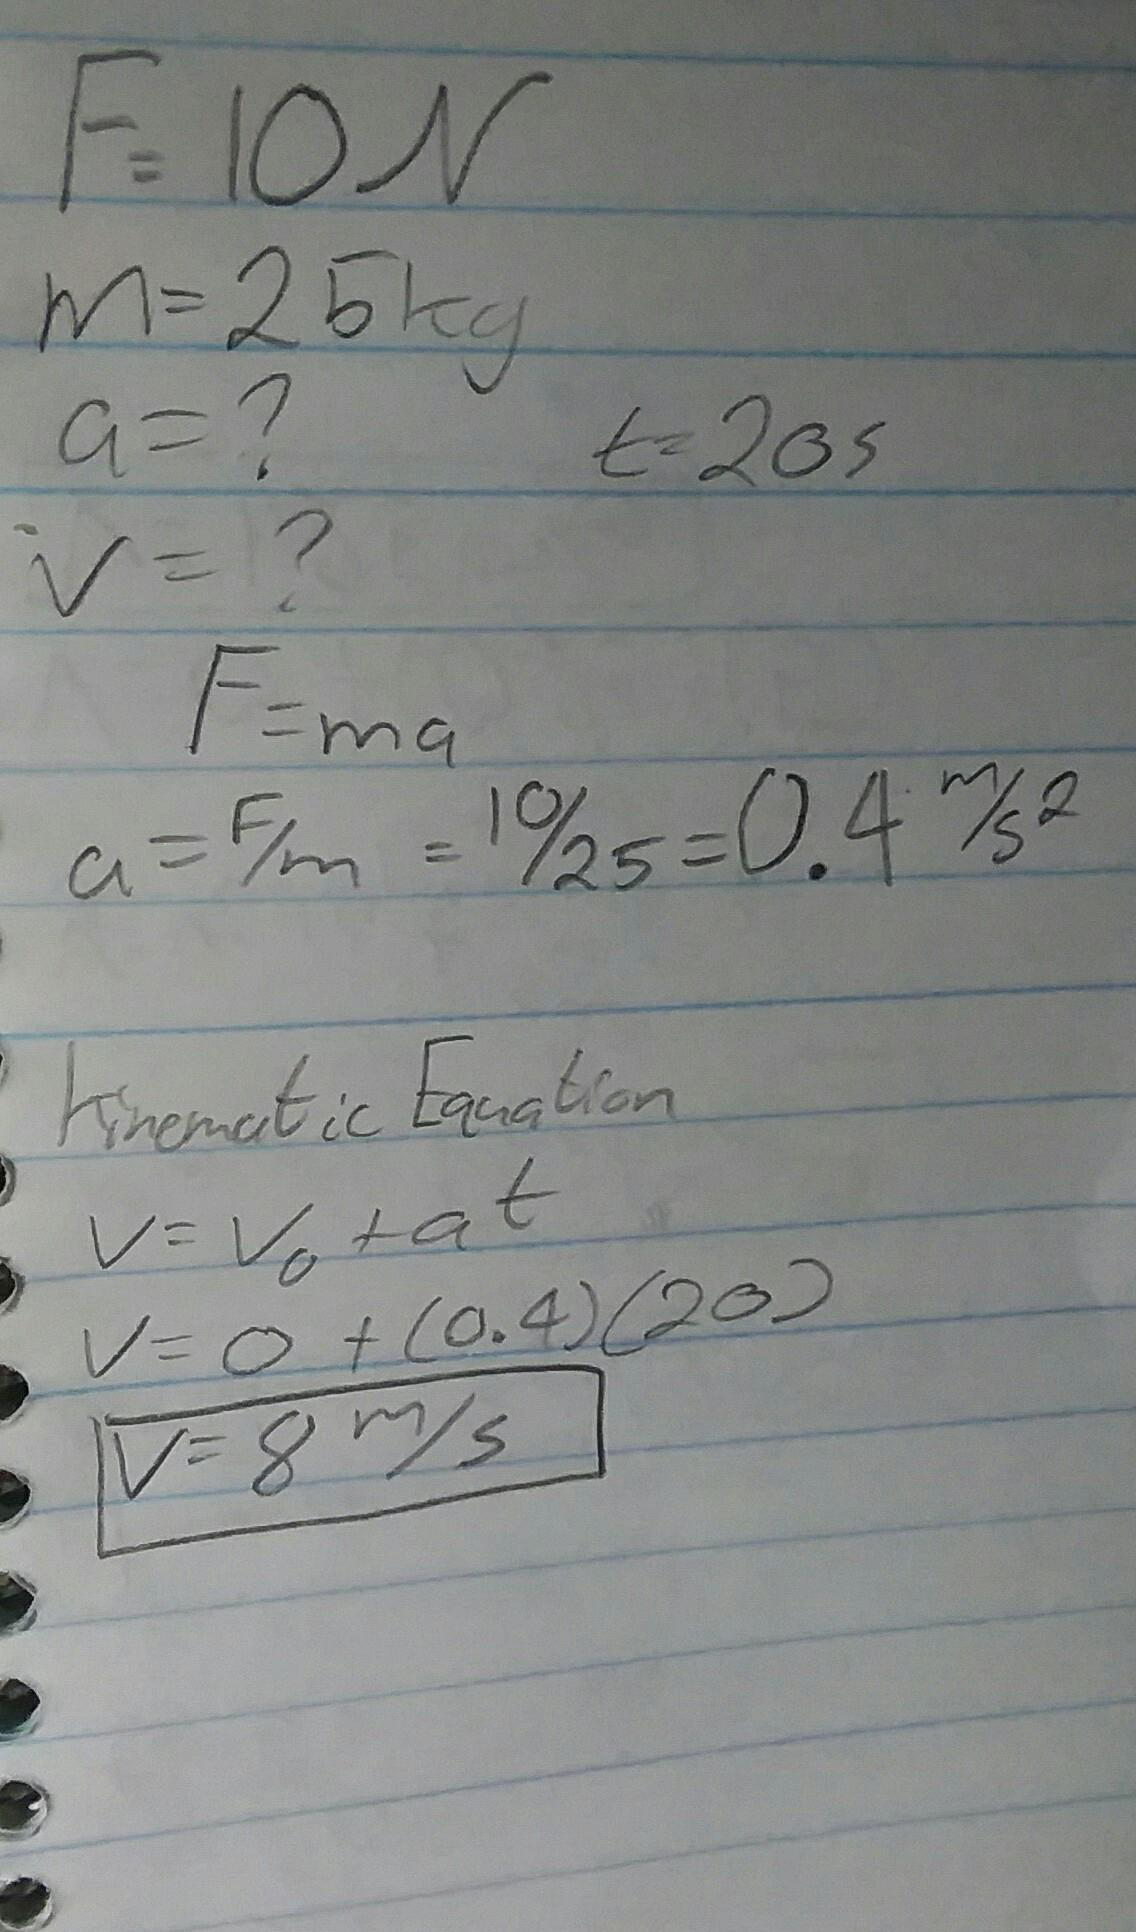 F= 10 N
m= 25kg
a= ? t= 20s
v= ?
F=ma
a= F/m = 10/25 = 0.4 m/s²
Kinematic Equation
v= v₀ +at
v= 0 + (0.4)(20)
v= 8 m/s